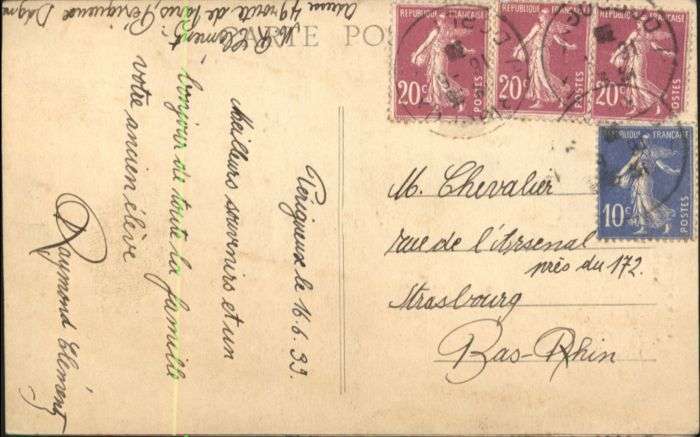 CARTE POS
R. Clément
49 route de Paris, Périgueux
Périgueux le 16.6.39.
Meilleurs souvenirs et un
bonjour de toute la famille
votre ancien élève
Raymond Clément
REPUBLIQUE FRANÇAISE
20c
POSTES
REPUBLIQUE FRANÇAISE
20c
POSTES
REPUBLIQUE FRANÇAISE
20c
POSTES
REPUBLIQUE FRANÇAISE
10c
POSTES
M. Chevalier
rue de l'Arsenal
près du 172.
Strasbourg
Bas-Rhin